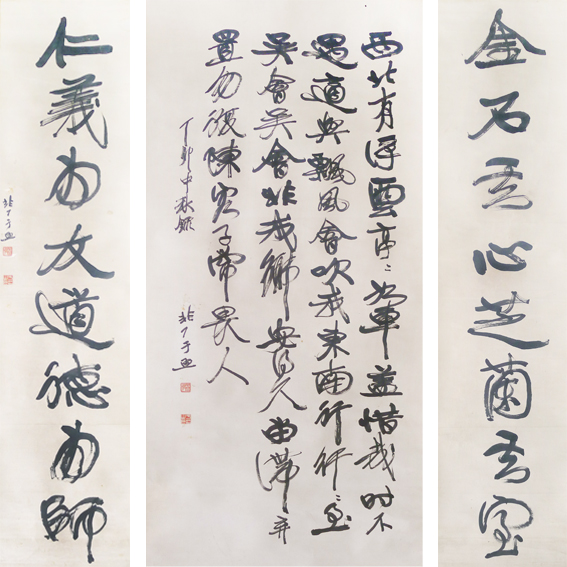 金石亓心芝蘭亓室
西北有浮雲亭〻如車蓋惜哉时不
遇適與飄風會吹我東南行行〻至
吳會吳會非我鄉安得久留滯弃
置勿復陳客子常畏人
丁卯中秋錄
非厂于照
仁義為友道德為師
非厂于照